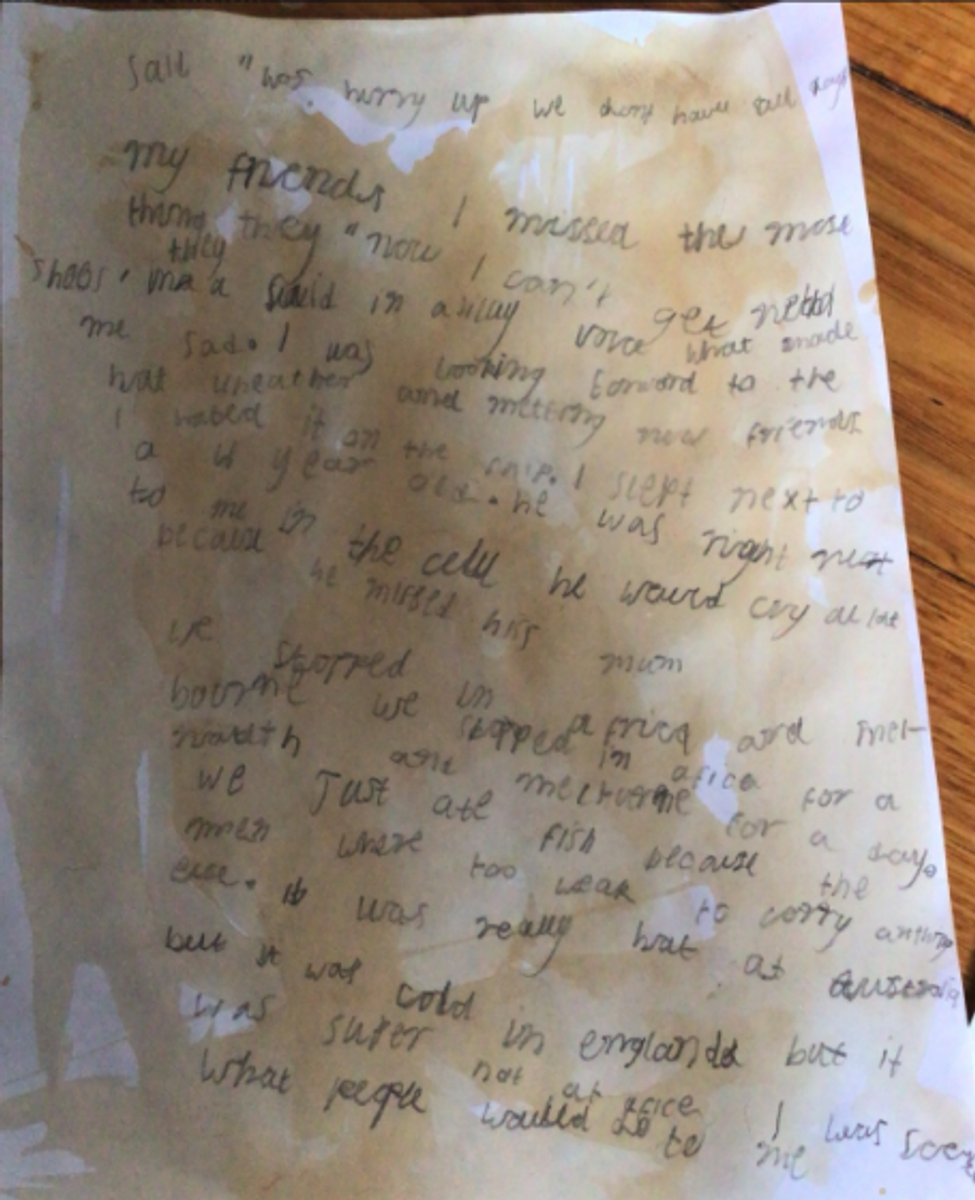 said "was hurry up we dont have all day
my friends I missed the most
thing they "now I can't get new
they
shoes" ma a said in a silly voice what made
me sad. I was looking forward to the
hot wheather and meteing new friends
I hated it on the ship. I slept next to
a year old. he was right next
to me in the cell he would cry alot
because he missed his mum
we stopped in africa and mel-
bourne we stopped in africa for a
month and melburne for a day.
we Just ate fish because the
men where too weak to carry anthing
else. it was really hot at Australia
but it was cold in englandd but it
was super hot at africa I was scared
what people would do to me